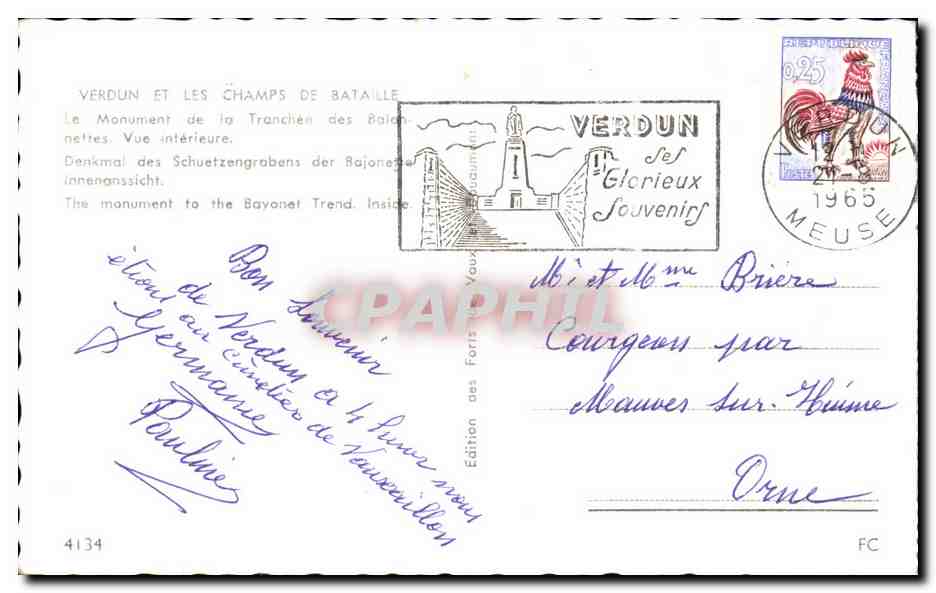 VERDUN ET LES CHAMPS DE BATAILLE
Le Monument de la Tranchée des Baïon-
nettes. Vue intérieure.
Denkmal des Schuetzengrabens der Bajonette
innenanssicht.
The monument to the Bayonet Trend. Inside.
VERDUN
ses
Glorieux
Souvenirs
REPUBLIQUE FRANCAISE
0,25
POSTES
VERDUN
12 H
1965
MEUSE
Bon Souvenir
de Verdun a 4 heures nous
étions au Cimetière de Vauxaillon
Germaine
Pauline
Mr et Mme Brière
Courgeon par
Mauves sur-Huisne
Orne
Edition des Forts de Vaux et Douaumont
CPAPHIL
4134
FC